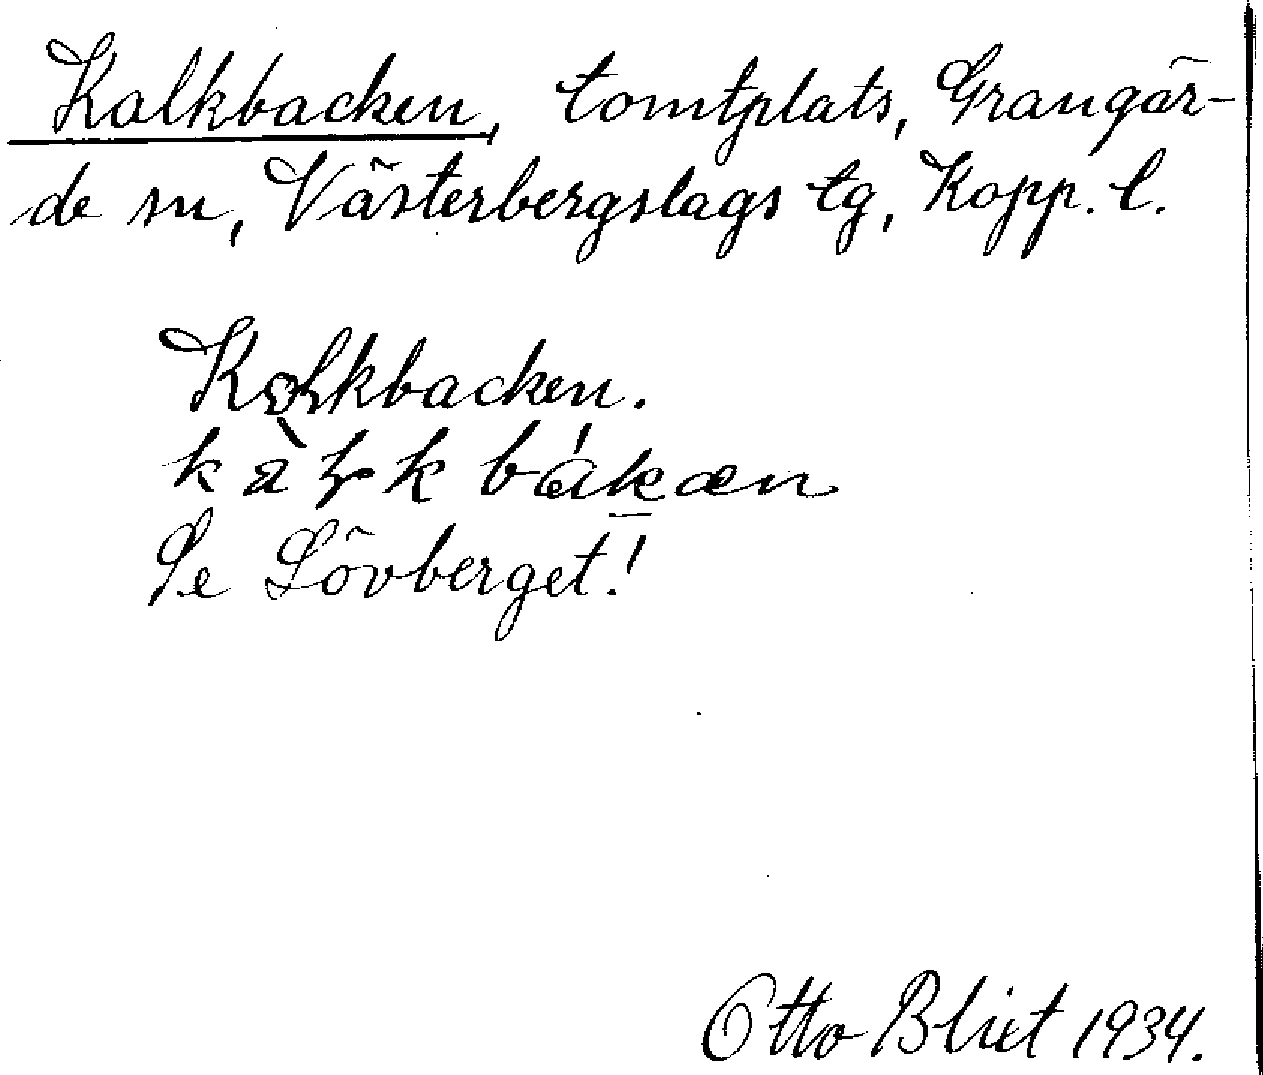 Kalkbacken, tomtplats, Grangär-
de sn, Västerbergslags tg, Kopp. l.
Kalkbacken.
Se Lövberget!
Otto Blixt 1934.